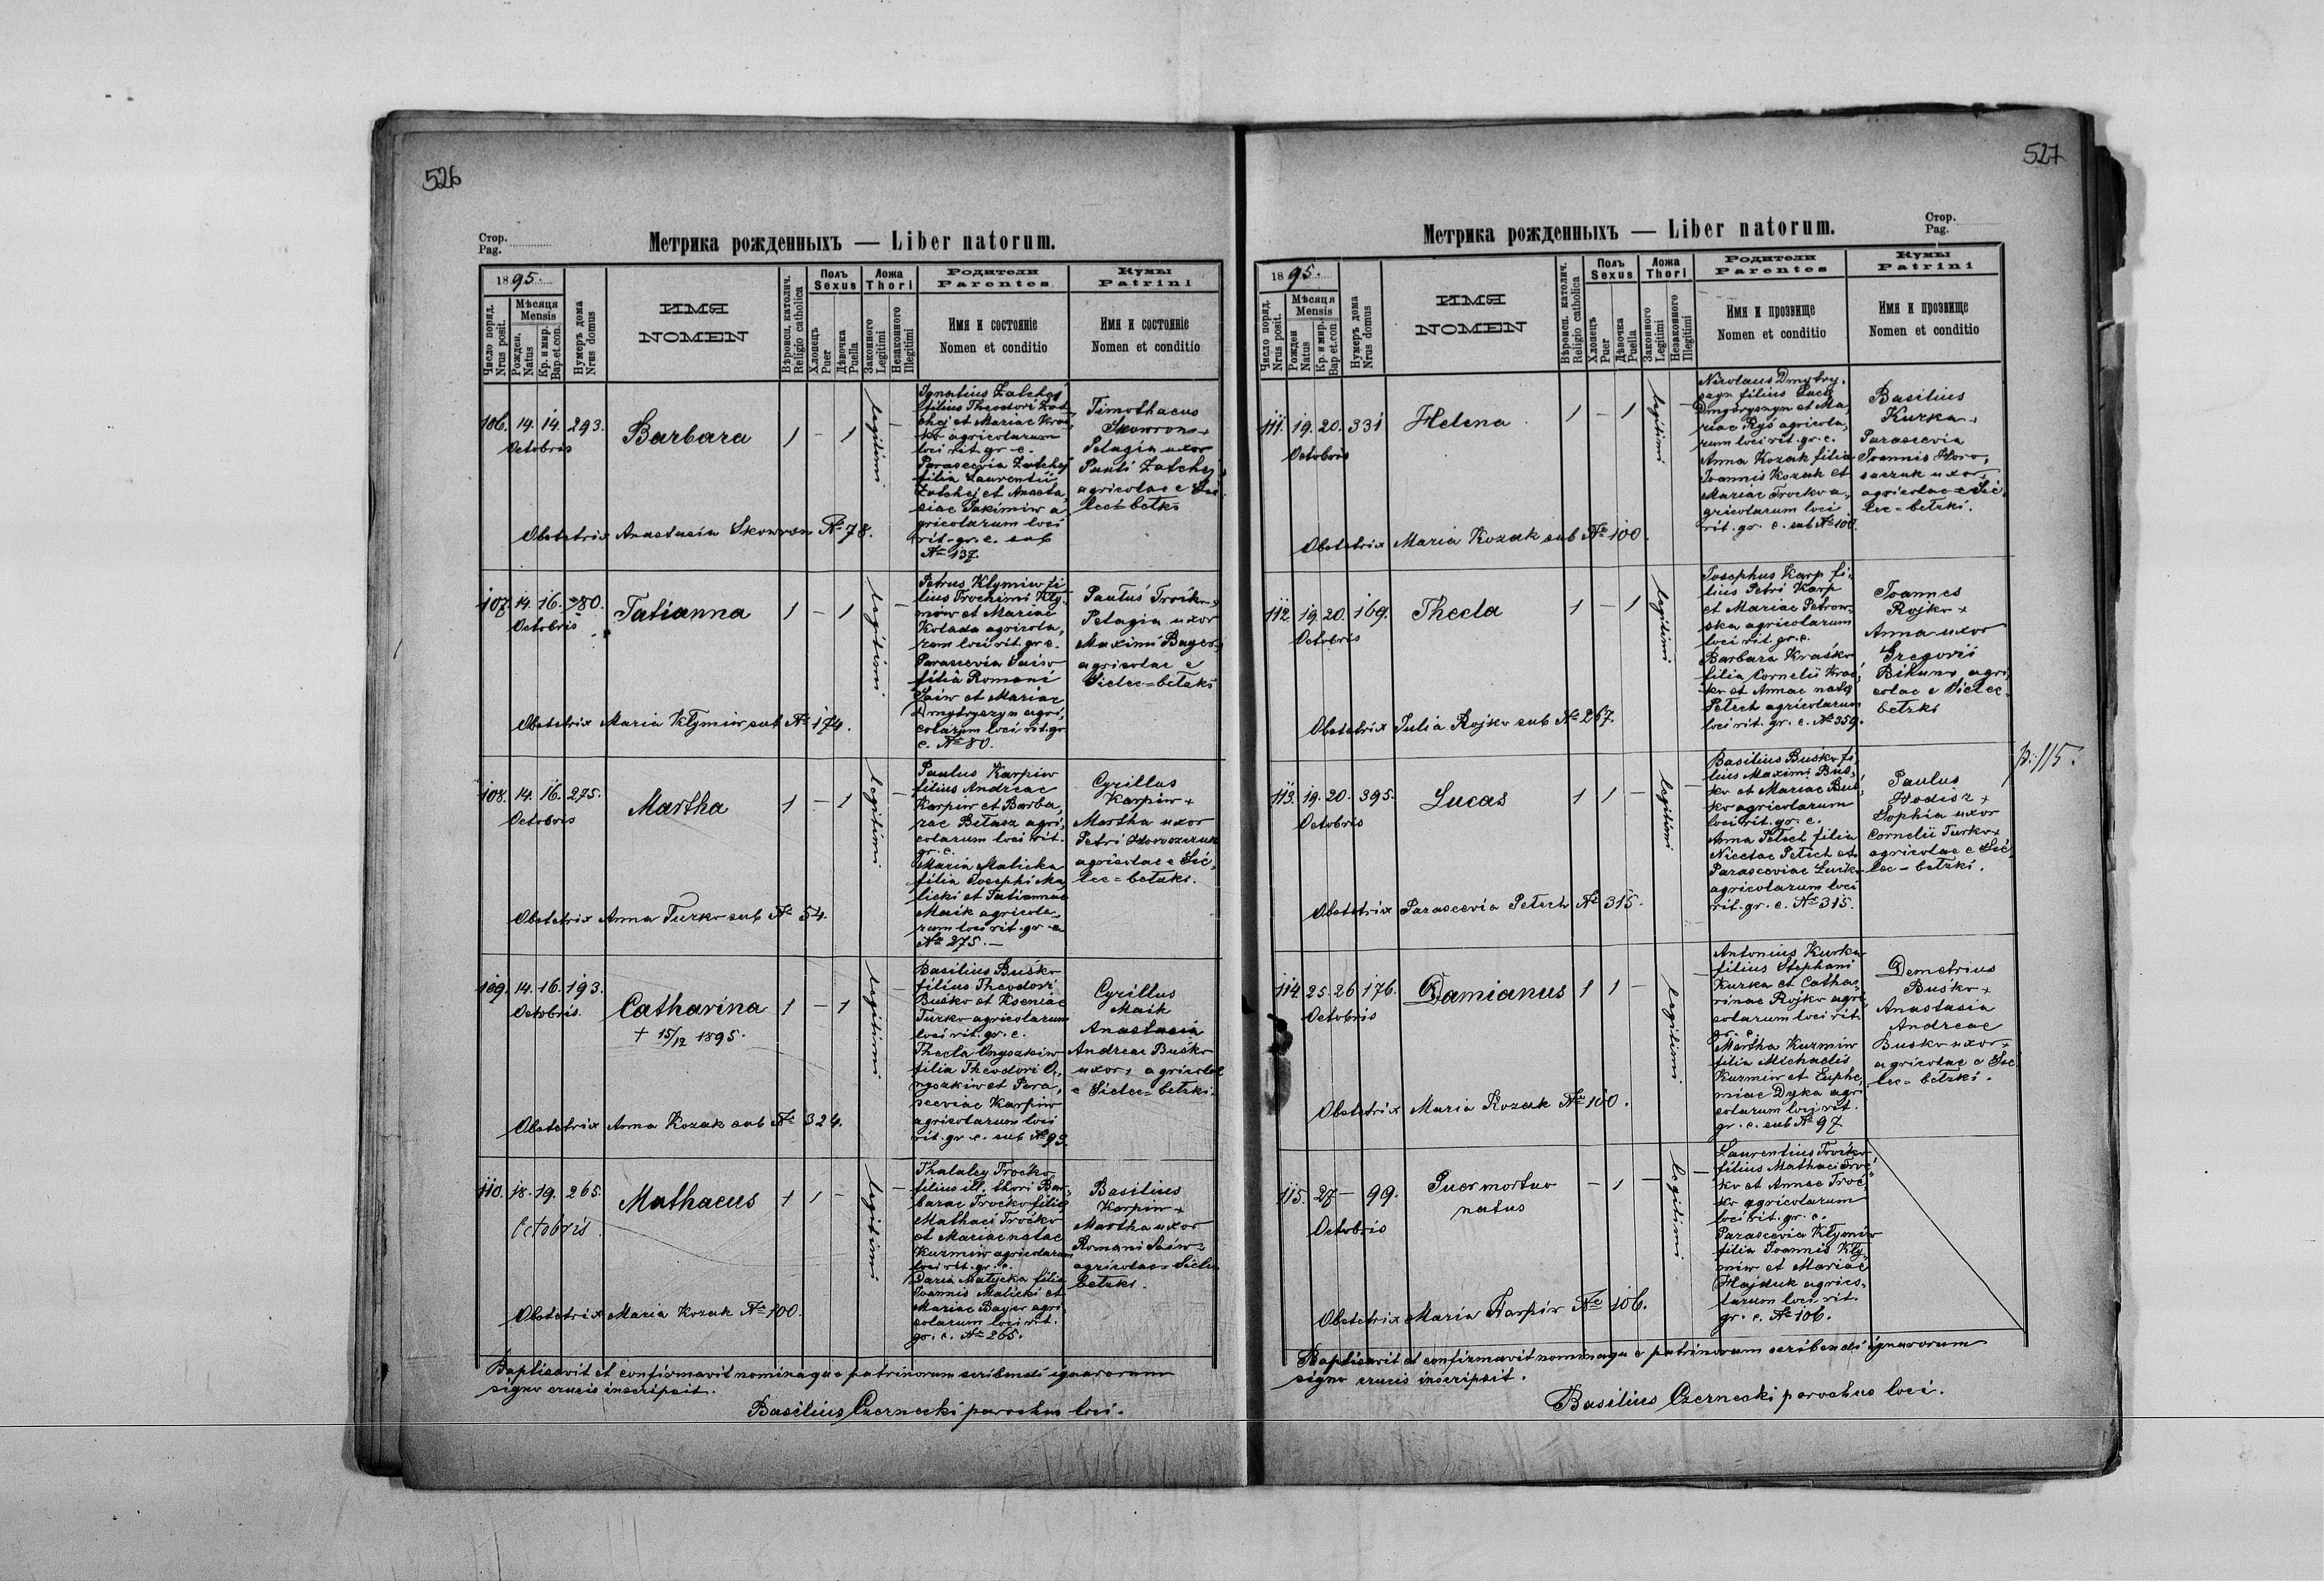 526
Стор.
Pag.
Метрика рожденныхъ — Liber natorum.
1895.
Число поряд.
Nrus posit.
Мѣсяця
Mensis
Рожден.
Natus
Кр. и мир.
Bap. et con.
Нумеръ дома
Nrus domus
ИМЯ
NOMEN
Вѣроисп. католич.
Religio catholica
Полъ
Sexus
Хлопець
Puer
Дѣвочка
Puella
Ложа
Thori
Законного
Legitimi
Незаконного
Illegitimi
Родители
Parentes
Имя и состоянiе
Nomen et conditio
Кумы
Patrini
Имя и состоянiе
Nomen et conditio
106. 14. 14. 293.
Octobris
Barbara
1 – 1
legitimi
Ignatius Zatchej
filius Theodori Zat
chej et Mariae Kras
ko agricolarum
loci rit. gr. c.
Parascevia Zatchej
filia Laurentii
Zatchej et Anasta,
siae Jakimiw a
gricolarum loci
rit. gr. c. sub
№ 137.
Timothaeus
Skowron +
Pelagia uxor
Pauli Zatchej
agricolae e Sie
lec = betzki
Obstetrix Anastasia Skowron № 78.
107. 14. 16. 80.
Octobris
Tatianna
1 – 1
legitimi
Petrus Kłymiw fi
lius Trochimi Kły
mów et Mariae
Kolada agricola,
rum loci rit. gr. c.
Parascevia Saiw
filia Romani
Saiw et Mariae
Dmytryszyn agri,
colarum loci rit. gr.
c. № 80.
Paulus Troćko +
Pelagia uxor
Maximi Bayer +
agricolae e
Sielec = betzki
Obstetrix Maria Kłymiw sub № 174.
108. 14. 16. 275.
Octobris
Martha
1 – 1
legitimi
Paulus Karpiw
filius Andreae
Karpiw et Barba,
rae Bełasz agri,
colarum loci rit.
gr. c.
Maria Malicka
filia Josephi Ma
licki et Tatiannae
Maik agricola,
rum loci rit. gr. c.
№ 275. –
Cyrillus
Karpiw +
Martha uxor
Petri
agricolae e Sie,
lec = betzki.
Obstetrix Anna Turko sub № 54.
109. 14. 16. 193.
Octobris
Catharina
† 15/12 1895.
1 – 1
legitimi
Basilius Buśko
filius Theodori
Buśko et Kseniae
Turko agricolarum
loci rit. gr. c.
Thecla Onyszkiw
filia Theodori O,
nyszkiw et Para,
sceviae Karpiw
agricolarum loci
rit. gr. c. sub № 93
Cyrillus
Maik
Anastasia
Andreae Buśko
uxor + agricolae
e Sielec = betzki.
Obstetrix Anna Kozak sub № 324.
110. 18. 19. 265.
Octobris
Mathaeus
1 1 –
legitimi
Thalaley Troćko
filius ill. thori Bar,
barae Troćko filia
Mathaei Troćko
et Mariae natae
Kuzmiw agricolarum
loci rit. gr. c.
Daria Malycka filia
Joannis Malicki et
Mariae Bayer agri
colarum loci rit.
gr. c. № 265.
Basilius
Karpiw +
Martha uxor
Romani Saiw +
agricolae Sielec
betzki.
Obstetrix Maria Kozak № 100.
Baptisavit et confirmavit nominaque patrinorum scribendi ignarorum
signo crucis inscripsit.
Basilius Czernecki parochus loci.
527
Стор.
Pag.
Метрика рожденныхъ — Liber natorum.
1895.
Число поряд.
Nrus posit.
Мѣсяця
Mensis
Рожден
Natus
Кр. и мир.
Bap. et con.
Нумеръ дома
Nrus domus
ИМЯ
NOMEN
Вѣроисп. католич.
Religio catholica
Полъ
Sexus
Хлопець
Puer
Дѣвочка
Puella
Ложа
Thori
Законного
Legitimi
Незаконного
Illegitimi
Родители
Parentes
Имя и прозвище
Nomen et conditio
Кумы
Patrini
Имя и прозвище
Nomen et conditio
111. 19. 20. 331
Octobris
Helena
1 – 1
legitimi
Nicolaus Dmytry,
szyn filius Luca
Dmytryszyn et Ma,
riae Ryś agricola,
rum loci rit. gr. c.
Anna Kozak filia
Joannis Kozak et
Mariae Troćko a,
gricolarum loci
rit. gr. c. sub № 100.
Basilius
Kurka +
Parascevia
Joannis Horo,
uxor
agricolae e Sie,
lec = betzki.
Obstetrix Maria Kozak sub № 100.
112. 19. 20. 169.
Octobris
Thecla
1 – 1
legitimi
Josephus Karp fi,
lius Petri Karp
et Mariae Petrow,
ska agricolarum
loci rit. gr. c.
Barbara Kraśko
filia Cornelii Kraś,
ko et Annae nata
Petech agricolarum
loci rit. gr. c. № 359.
Joannes
Rojko +
Anna uxor
Gregorii
Bihun + agri,
colae e Sielec
betzki
Obstetrix Julia Rojko sub № 267.
113. 19. 20. 395.
Octobris
Lucas
1 1 –
legitimi
Basilius Buśko fi
lius Maximi Buś,
ko et Mariae Buś,
ko agricolarum
loci rit. gr. c.
Anna Petech filia
Nicetae Petech et
Parasceviae
agricolarum loci
rit. gr. c. № 315.
Paulus
Hodisz +
Sophia uxor
Cornelii Turko +
agricolae e Sie,
lec = betzki.
p. 115.
Obstetrix Parascevia Petech № 315.
114. 25. 26 176.
Octobris
Damianus
1 1 –
legitimi
Antonius Kurka
filius Stephani
Kurka et Catha,
rinae Rojko agri,
colarum loci rit.
gr. c.
Martha Kuzmiw
filia Michaelis
Kuzmiw et Euphe,
miae Dyka agri
colarum loci rit.
gr. c. sub № 97
Demetrius
Buśko +
Anastasia
Andreae
Buśko uxor +
agricolae e Sie,
lec = betzki.
Obstetrix Maria Kozak № 100.
115. 27 – 99.
Octobris
Puer mortuo
natus
– 1 –
legitimi
Laurentius Troćko
filius Mathaei Troć,
ko et Annae Troć,
ko agricolarum
loci rit. gr. c.
Parascevia Kłymiw
filia Joannis Kły,
miw et Mariae
Hajduk agrico,
larum loci rit.
gr. c. № 106.
Obstetrix Maria Karpiw № 106.
Baptisavit et confirmavit nominaque patrinorum scribendi ignarorum
signo crucis inscripsit.
Basilius Czernecki parochus loci.